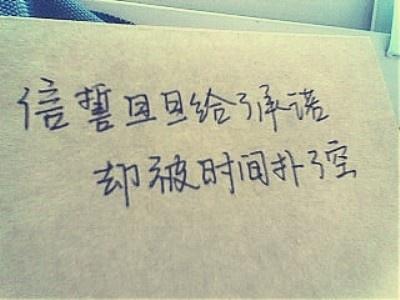 信誓旦旦给了承诺
却被时间扑了空